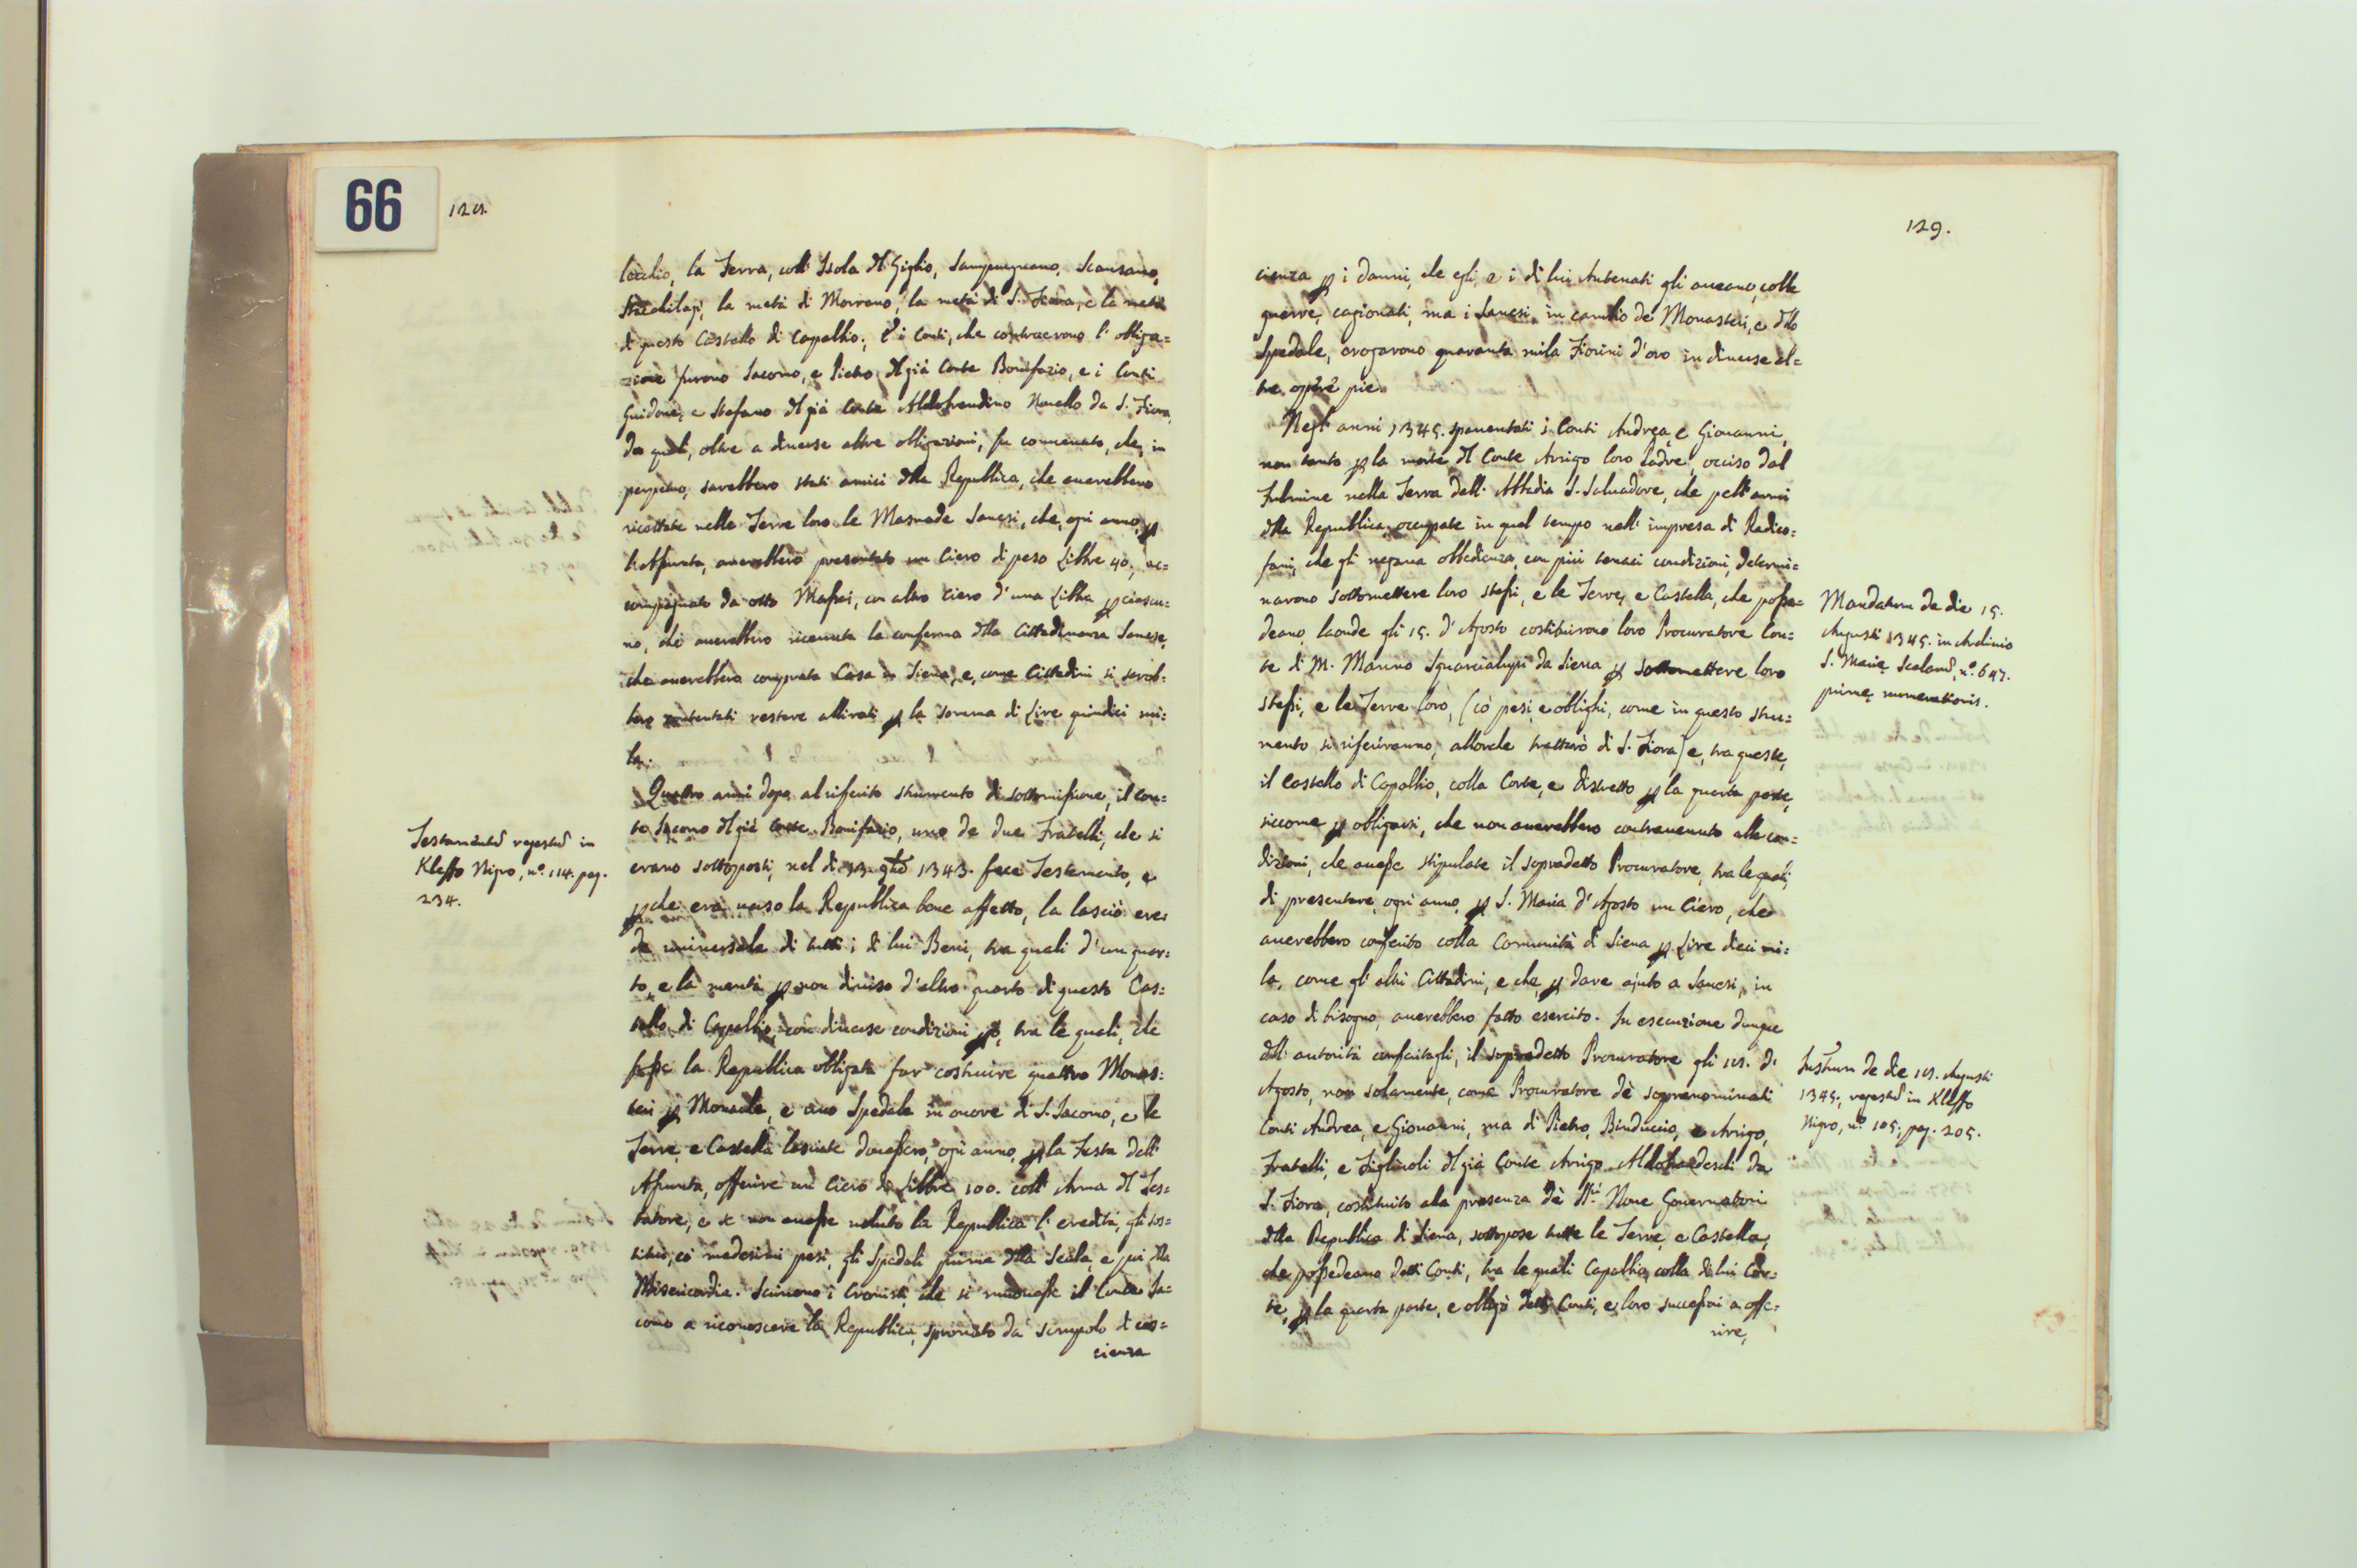 66
128.
locchio, la Terra, coll' Isola dl Giglio, Sampugnano, Scansano,
Stachilagi, la metà di Morrano, la metà di S. Fiora, e la metà
di questo Castello di Capalbio; E i Conti, che contraerono l' obliga=
zione furono Iacomo, e Pietro dl già Conte Bonifazio, e i Conti
Guidone, e Stefano dl già Conte Aldobrandino Novello da S. Fiora,
da quali, oltre a diuerse altre obligazioni, fu conuenuto, che, in
perpetuo, sarebbero stati amici dlla Republica, che auerebbero
ricettate nelle Terre loro le Masnade Sanesi, che, ogni anno, p
l' Assunta, auerebbero presentato un Ciero di peso Libbre 40., ac=
compagnato da otto Massai, con altro Ciero d' una Libbra p ciascu=
no, che auerebbero riceuuta la conferma dlla Cittadinanza Sanese,
che auerebbero comprata Casa in Siena, e, come Cittadini si sareb=
bero contentati restare allirati p la somma di Lire quindici mi=
la.
Quattro anni dopo al riferito strumento di sottomissione, il Con=
te Iacomo dl già Conte Bonifazio, uno de due Fratelli, che si
erano sottoposti, nel dì 13. 9bre 1343. fece Testamento, e
Testamentu regestu in
Kleffo Nigro, nº. 114. pag.
234.
pche era uerso la Republica bene affetto, la lasciò ere=
de uniuersale di tutti i di lui Beni, tra quali d' un quar=
to, e la metà p non diuiso d' altro quarto di questo Cas=
tello di Capalbio, con diuerse condizioni pò, tra le quali, che
fosse la Republica obligata far costruire quattro Monas=
teri p Monache, e uno Spedale in onore di S. Iacomo, e le
Terre, e Castella lasciate douessero, ogni anno, p la Festa dell'
Assunta, offerire un Ciero di Libbre 100. coll' Arma dl Tes=
tatore, e se non auesse uoluto la Republica l' eredità, gli sos=
tituì, cò medesimi pesi, gli Spedali prima dlla Scala, e poi dlla
Misericordia. Scriuono i Cronisti, che si mouesse il Conte Ia=
como a riconoscere la Republica, spronato da' scrupolo di cos=
cienza
129.
cienza p i danni, che egli, e i di lui Antenati gli aueano, colle
guerre, cagionati, ma i Sanesi, in cambio de Monasteri, e dllo
Spedale, erogarono quaranta mila Fiorini d' oro in diuerse al=
tre opere pie.
Negl' anni 1345. spauentati i Conti Andrea, e Giouanni,
non tanto p la morte dl Conte Arrigo loro Padre, occiso dal
Fulmine nella Terra dell' Abbadia S. Saluadore, che pell' armi
dlla Republica, occupate in quel tempo nell' impresa di Radico=
fani, che gli negaua obbedienza, con più tenaci condizioni, determi=
narono sottomettere loro stessi, e le Terre, e Castella, che posse=
deano, laonde gli 15. d' Agosto costituirono loro Procuratore Con=
te di M. Marino Squarcialupi da Siena p sottomettere loro
stessi, e le Terre loro, (cò pesi, e oblighi, come in questo stru=
mento si riferiranno, allorche tratterò di S. Fiora) e, tra queste,
il Castello di Capalbio, colla Corte, e distretto p la quarta parte,
siccome p obligarsi, che non auerebbero contrauenuto alle con=
dizioni, che auesse stipulate il sopradetto Procuratore, tra le quali,
di presentare, ogni anno, p S. Maria d' Agosto un Ciero, che
auerebbero conferito colla Comunità di Siena p Lire dieci mi=
la, come gl' altri Cittadini, e che, p dare ajuto a Sanesi, in
caso di bisogno, auerebbero fatto esercito. In esecuzione dunque
dll' autorità conferitagli, il sopradetto Procuratore gli 18. d'
Agosto, non solamente, come Procuratore de sopranominati
Conti Andrea, e Giouanni, ma di Pietro, Binduccio, e Arrigo,
Fratelli, e Figliuoli dl già Conte Arrigo Aldobrandeschi da
S. Fiora, costituito alla presenza de SSri Noue Gouernatori
dlla Republica di Siena, sottopose tutte le Terre, e Castella,
che possedeano detti Conti, tra le quali Capalbio, colla di lui Cor=
te, p la quarta parte, e obligò detti Conti, e loro successori a offe=
rire,
Mandatum de die 15.
Augusti 1345. in Archiuio
S. Marie Scalarū, nº. 647.
prime numerationis.
Instrum de die 18. Augusti
1345., regestu in Kleffo
Nigro, nº. 105, pag. 205.